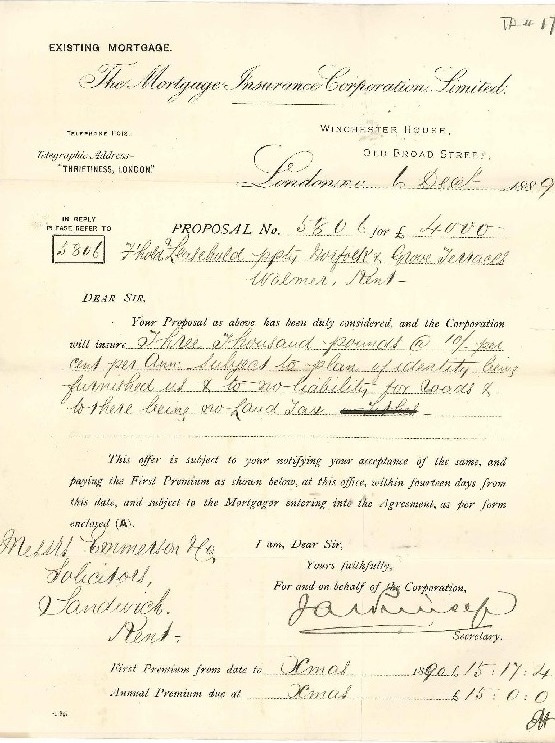 TP # 17
EXISTING MORTGAGE.
The Mortgage Insurance Corporation Limited.
TELEPHONE 1012.
WINCHESTER HOUSE,
Telegraphic Address—
OLD BROAD STREET,
"THRIFTINESS, LONDON"
London E.C. 6 Decr 1889
IN REPLY
PLEASE REFER TO
5806
PROPOSAL No. 5806 for £ 4000
Fhold & Leasehold ppty Norfolk & Grove Terraces
Walmer, Kent-
DEAR SIR,
Your Proposal as above has been duly considered, and the Corporation
will insure Three Thousand pounds @ 10/ per
cent per Ann. subject to plan of identity being
furnished us & to no liability for roads &
to there being no Land Tax
This offer is subject to your notifying your acceptance of the same, and
paying the First Premium as shown below, at this office, within fourteen days from
this date, and subject to the Mortgagor entering into the Agreement, as per form
enclosed (A).
Messrs Emmerson & Co
Solicitors,
Sandwich.
Kent-
I am, Dear Sir,
Yours faithfully,
For and on behalf of the Corporation,
Secretary.
First Premium from date to Xmas 1890 £15:17:4
Annual Premium due at Xmas £15:0:0